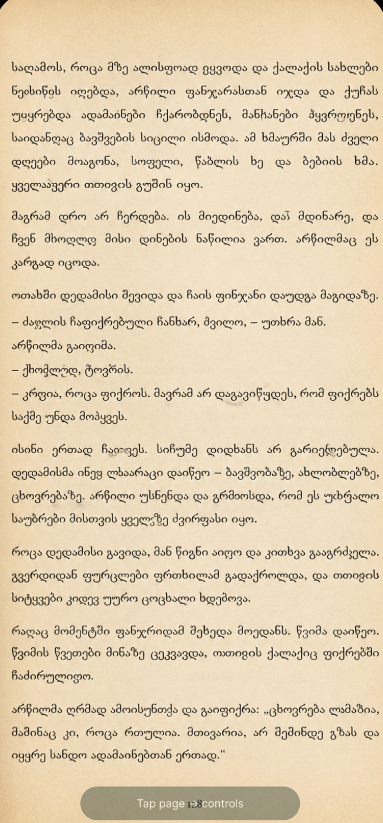 საღამოს, როცა მზე ალისფოად ყვოდა და ქალაქის სახლები
იღებდა, არწილი ფანჯარასთან იჯდა და ქუჩას
უყყრებდა ადამაინები ჩქარობდნეს, მანჩანები
საიდანღაც ბავშვების სიცილი ისმოდა. ამ ხმაურში მას ძველი
დღეები მოაგონა, სოფელი, წაბლის ხე და ბებიის ხმა.
გუშინ იყო.
მაგრამ დრო არ ჩერდება. ის მიედინება, მდინარე, და
ჩვენ მხოდლდ მისი დინების ნაწილია ვართ. არწილმაც ეს
კარგად იცოდა.
ოთახში დედამისი შევიდა და ჩაის ფინჯანი დაუდგა მაგიდაზე.
– ჩაფიქრებული ჩანხარ, შვილო, – უთხრა მან.
არწილმა გაიღიმა.
–
– როცა ფიქროს. მავრამ არ დაგავიწყდეს, რომ ფიქრებს
საქმე უნდა მოჰყვეს.
ისინი ერთად სიჩუმე დიდხანს არ
დედამისმა ინევ ლხაარაცი დაიწეო – ბავშვობაზე, ახლობლებზე,
ცხოვრებაზე. არწილი უსნენდა და გრმოოსდა, რომ ეს უხრალო
საუბრები მისთვის ძვირფასი იყო.
როცა დედამისი გავიდა, მან წიგნი აიღო და კითხვა გააგრძელა.
გვერდიდან ფურცლები ფრთხილამ გადაქროლდა, და თთივის
სიტყვები კიდევ უურო ცოცხალი ხდებოვა.
რაღაც მომენტში ფანჯრიდამ შეხედა მოედანს. წვიმა დაიწეო.
წვიმის წვეთები მინაზე ცეკვავდა, ქალაქიც ფიქრებში
არწილმა ღრმად ამოისუნთქა და გაიფიქრა: „ცხოვრება ლამაზია,
მაშინაც კი, როცა რთულია. მთივარია, არ შემინდე გზას და
იყყრე სანდო ადამაინებთან ერთად.“
Tap page controls